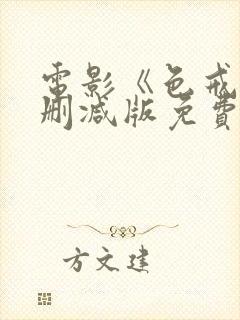 電影《色戒
刪減版免費
方文建